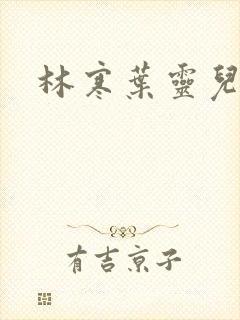 林寒葉靈兒
有吉京子